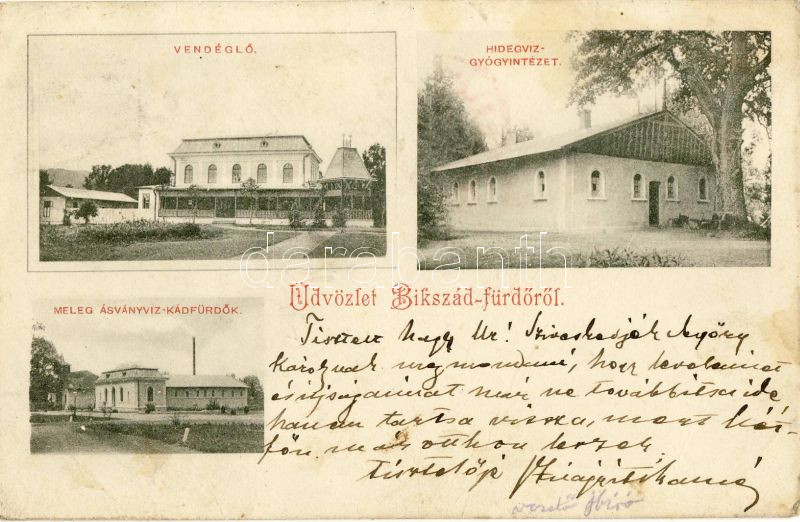 VENDÉGLŐ.
HIDEGVIZ-
GYÓGYINTÉZET.
darabanth
MELEG ÁSVÁNYVIZ-KÁDFÜRDŐK.
Üdvözlet Bikszád-fürdőről.
Tisztelt Nagy Ur! Sziveskedjék Győry
Károlynak megmondani, hogy leveleimet
és ujságaimat már ne továbbitsa ide
hanem tartsa vissza, mert hét-
főn már otthon leszek.
tisztelője